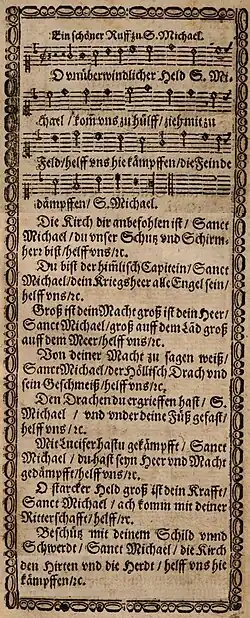 Ein schöner Ruff zu S. Michael.
O Dvnüberwindlicher Held S. Mi-
chael / kom̃ vns zu hülff / zieh mit zu
Feld / helff vns hie kämpffen / die Feinde
dämpffen / S. Michael.
Die Kirch dir anbefohlen ist / Sanct
Michael / du vnser Schutz vnd Schirm-
herr bist / helff vns / ꝛc.
Du bist der himlisch Capitein / Sanct
Michael / dein Kriegsheer alle Engel sein /
helff vns / ꝛc.
Groß ist dein Macht groß ist dein Heer /
Sanct Michael / groß auff dem Lãd groß
auff dem Meer / helff vns / ꝛc.
Von deiner Macht zu sagen weiß /
Sanct Michael / der Höllisch Drach vnd
sein Geschmeiß / helff vns / ꝛc.
Den Drachen du ergrieffen hast / S.
Michael / vnd vnder deine Füß gefast /
helff vns / ꝛc.
Mit Lucifer hastu gekämpfft / Sanct
Michael / du hast seyn Heer vnd Macht
gedämpfft / helff vns / ꝛc.
O starcker Held groß ist dein Krafft /
Sanct Michael / ach komm mit deiner
Ritterschafft / helff / ꝛc.
Beschütz mit deinem Schild vnnd
Schwerdt / Sanct Michael / die Kirch
den Hirten vnd die Herdt / helff vns hie
kämpffen / ꝛc.